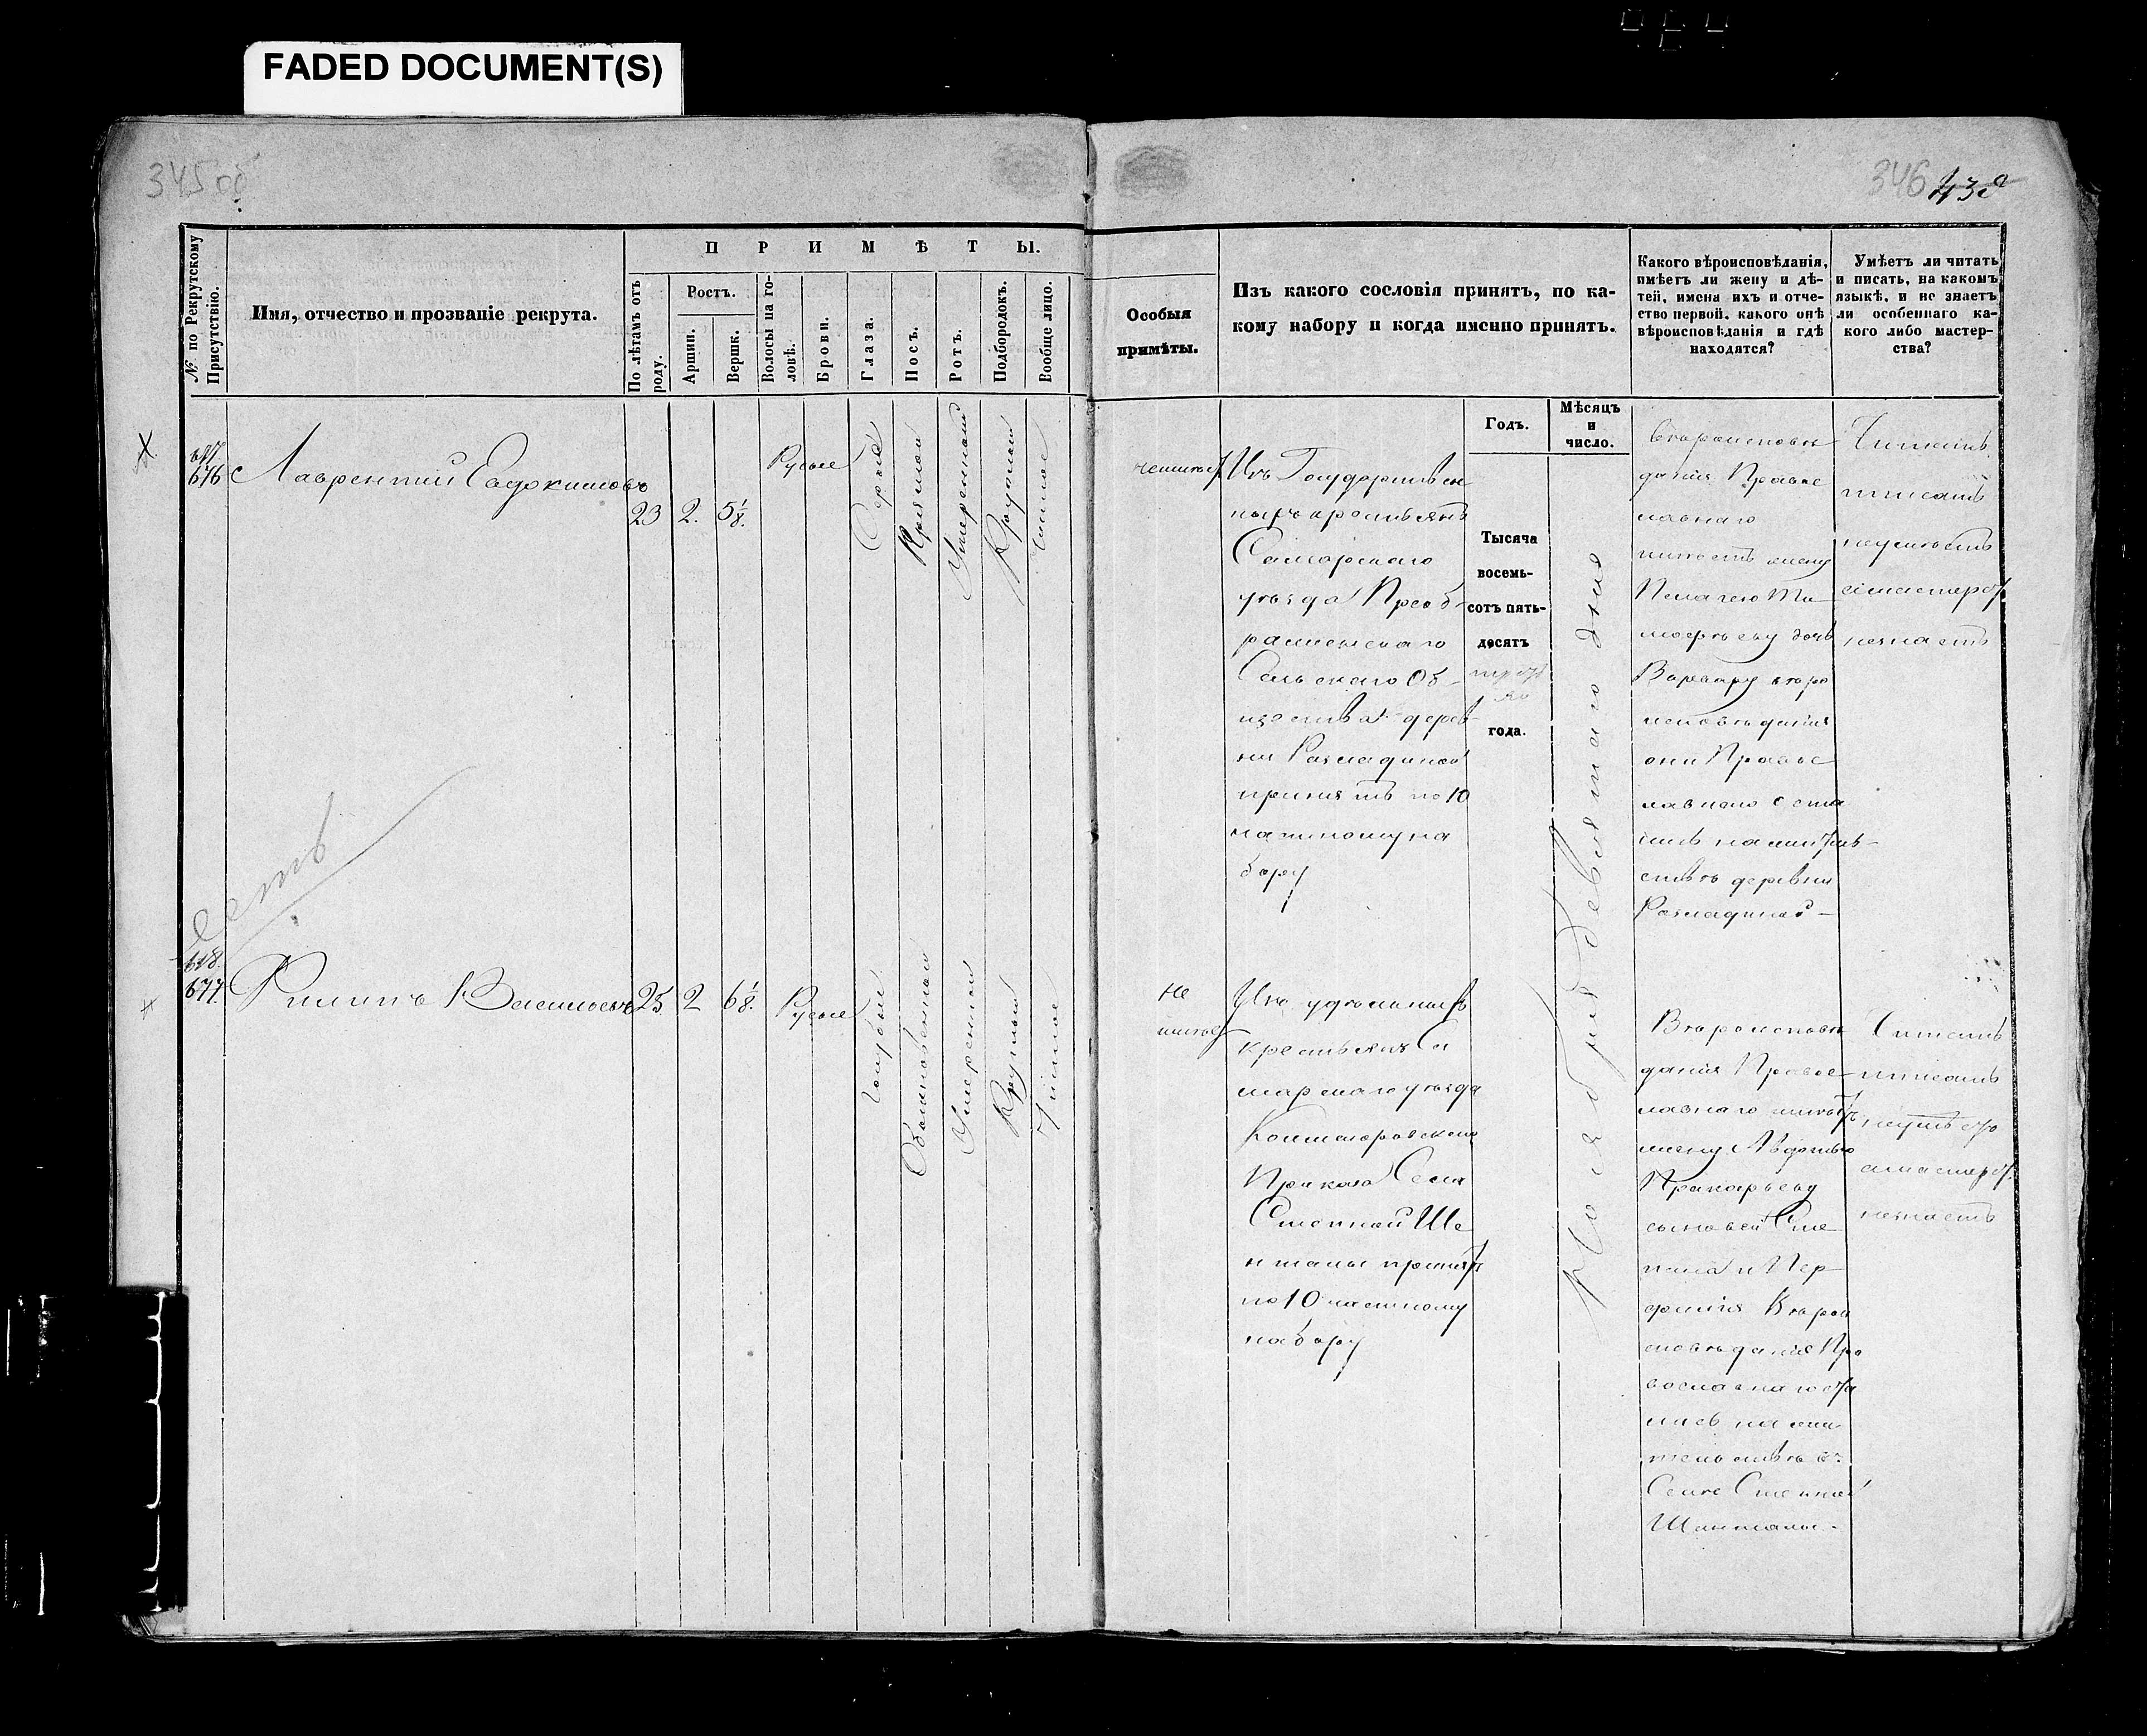 FADED DOCUMENT(S)
345 об
346
№ по Рекрутскому Присутствію.
Имя, отчество и прозваніе рекрута.
ПРИМѢТЫ.
По лѣтамъ отъ роду.
Ростъ.
Аршин.
Вершк.
Волосы на головѣ.
Брови.
Глаза.
Носъ.
Ротъ.
Подбородокъ.
Вообще лицо.
Особыя
примѣты.
Изъ какого сословія принятъ, по ка-
кому набору и когда именно принятъ.
Какого вѣроисповѣданія,
имѣетъ ли жену и дѣ-
тей, имена ихъ и отче-
ство первой, какого онѣ
вѣроисповѣданія и гдѣ
находятся?
Умѣетъ ли читать
и писать, на какомъ
языкѣ, и не знаетъ
ли особеннаго ка-
кого либо мастер-
ства?
Годъ.
Мѣсяцъ
и
число.
676
Лаврентий Евдокимовъ
23
2.
5 1/8.
Русые
Серые
Прямой
Умеренный
Круглый
Чистое
неимѣет
Изъ Государствен
ныхъ крестьянъ
Самарскаго
уѣзда Преоб-
раженскаго
Сельскаго Об-
щества дерев-
ни Разладиной
принятъ по 10
частному на
бору
Тысяча
восемь-
сотъ пять-
десятъ
года.
Ноября девятаго дня
Вѣроисповѣ
данія Правос
лавнаго
имѣетъ жену
Пелагею Ти
мофѣеву дочь
Варвару вѣро
исповѣданія
они Правос
лавнаго оста
лись на житель-
ствѣ деревни
Разладиной
Читать
писать
неумѣетъ
и мастерст.
незнаетъ
678.
677.
Филипъ Васильевъ
25
2
6 1/8.
Русые
Голубые
Обыкновенный
Умеренный
Круглый
Чистое
не
имѣет
Изъ удѣльныхъ
крестьянъ Са
марскаго уѣзда
Кошкинскаго
Приказа Села
Степной Ше
нталы принят
по 10 частному
набору
Вѣроисповѣ
данія Правос
лавнаго имѣетъ
жену Авдотью
сыновей Сте
пана и Пер
филия Вѣрои
сповѣданія Пра
вославнаго оста
лись на жи-
тельствѣ въ
Селе Степной
Шенталы.
Читать
писать
неумѣетъ
и мастерст.
незнаетъ